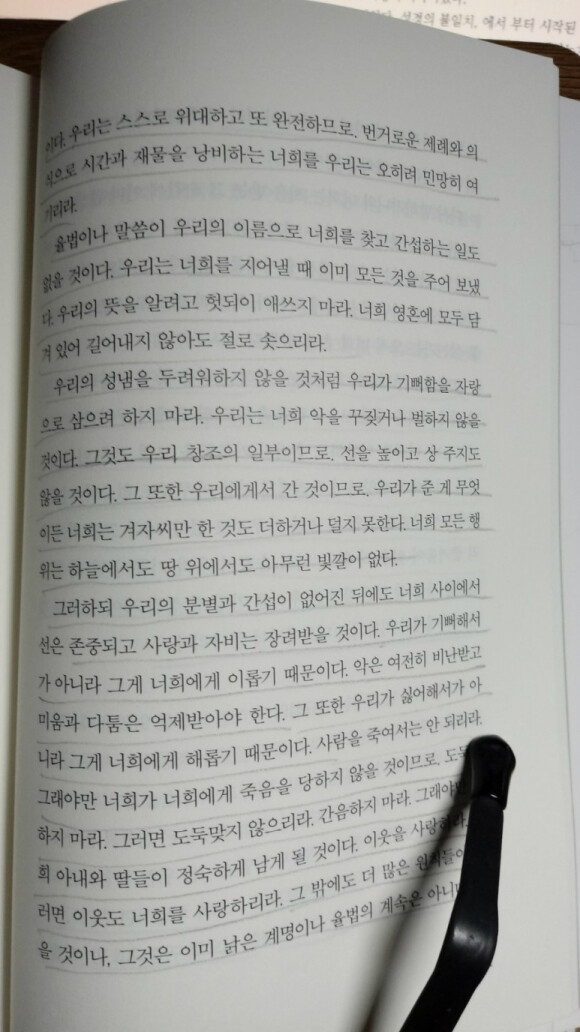 성경의 불일치, 에서 부터 시작된
이다. 우리는 스스로 위대하고 또 완전하므로, 번거로운 제례와 의
식으로 시간과 재물을 낭비하는 너희를 우리는 오히려 민망히 여
기리라.
율법이나 말씀이 우리의 이름으로 너희를 찾고 간섭하는 일도
없을 것이다. 우리는 너희를 지어낼 때 이미 모든 것을 주어 보냈
다. 우리의 뜻을 알려고 헛되이 애쓰지 마라. 너희 영혼에 모두 담
겨 있어 길어내지 않아도 절로 솟으리라.
우리의 성냄을 두려워하지 않을 것처럼 우리가 기뻐함을 자랑
으로 삼으려 하지 마라. 우리는 너희 악을 꾸짖거나 벌하지 않을
것이다. 그것도 우리 창조의 일부이므로. 선을 높이고 상 주지도
않을 것이다. 그 또한 우리에게서 간 것이므로. 우리가 준 게 무엇
이든 너희는 겨자씨만 한 것도 더하거나 덜지 못한다. 너희 모든 행
위는 하늘에서도 땅 위에서도 아무런 빛깔이 없다.
그러하되 우리의 분별과 간섭이 없어진 뒤에도 너희 사이에서
선은 존중되고 사랑과 자비는 장려받을 것이다. 우리가 기뻐해서
가 아니라 그게 너희에게 이롭기 때문이다. 악은 여전히 비난받고
미움과 다툼은 억제받아야 한다. 그 또한 우리가 싫어해서가 아
니라 그게 너희에게 해롭기 때문이다. 사람을 죽여서는 안 되리라.
그래야만 너희가 너희에게 죽음을 당하지 않을 것이므로. 도둑
하지 마라. 그러면 도둑맞지 않으리라. 간음하지 마라. 그래야
희 아내와 딸들이 정숙하게 남게 될 것이다. 이웃을 사랑하
러면 이웃도 너희를 사랑하리라. 그 밖에도 더 많은 원칙들이
을 것이나, 그것은 이미 낡은 계명이나 율법의 계속은 아니